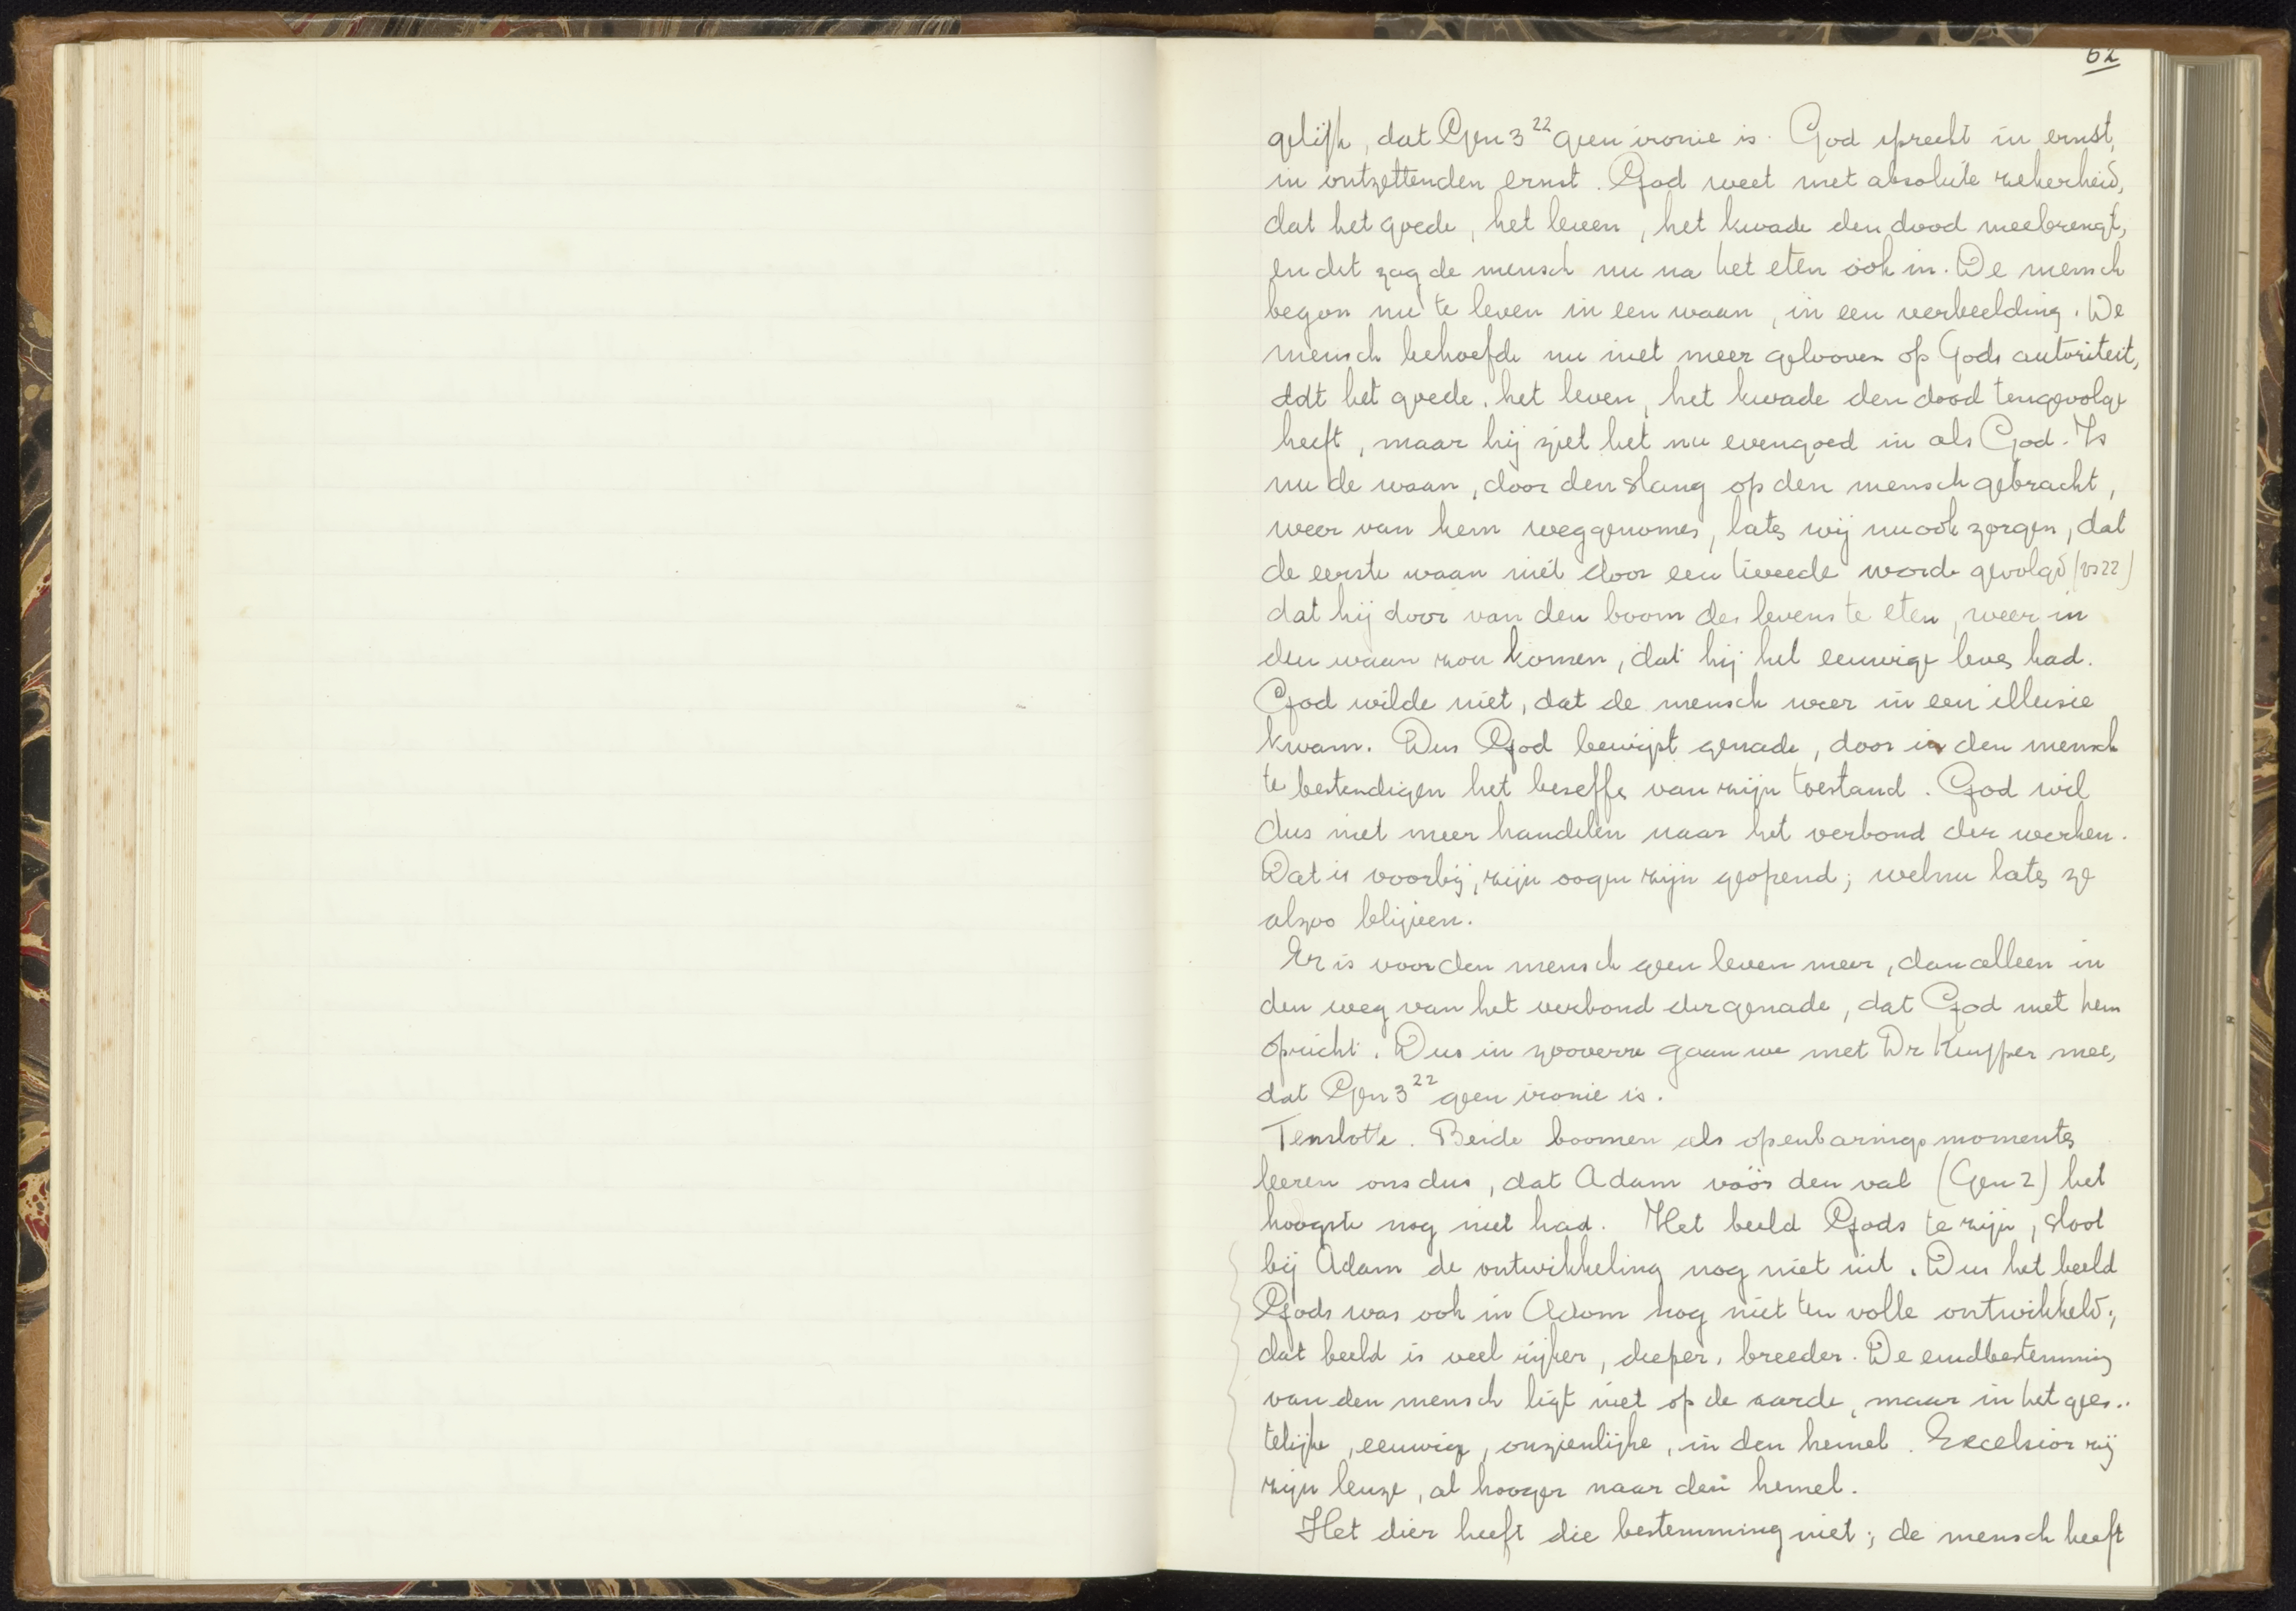 62
gelijk, dat Gen 3 22 geen ironie is. God spreekt in ernst,
in ontzettenden ernst. God weet met absolute zekerheid,
dat het goede, het leven, het kwade den dood meebrengt,
en dit zag de mensch nu na het eten óók in. De mensch
begon nu te leven in een waan, in een verbeelding. De
mensch behoefde nu niet meer gelooven op Gods autoriteit,
dat het goede, het leven, het kwade den dood tengevolge
heeft, maar hij ziet het nu evengoed in als God. Is
nu de waan, door den slang op den mensch gebracht,
weer van hem weggenomen, laten wij nu ook zorgen, dat
de eerste waan niet door een tweede worde gevolgd (vs 22)
dat hij door van den boom des levens te eten, weer in
den waan zou komen, dat hij het eeuwige leven had.
God wilde niet, dat de mensch weer in een illusie
kwam. Dus God bewijst genade, door in den mensch
te bestendigen het beseffen van zijn toestand. God wil
dus niet meer handelen naar het verbond der werken.
Dat is voorbij, zijn oogen zijn geopend; welnu laten ze
alzoo blijven.
Er is voor den mensch geen leven meer, dan alleen in
den weg van het verbond der genade, dat God met hem
opricht. Dus in zooverre gaan we met Dr Kuyper mee,
dat Gen 3 22 geen ironie is.
Tenslotte. Beide boomen als openbaringsmomenten
leeren ons dus, dat Adam vóór den val (Gen 2) het
hoogste nog niet had. Het beeld Gods te zijn, sloot
bij Adam de ontwikkeling nog niet uit. Dus het beeld
Gods was ook in Adam nog niet ten volle ontwikkeld;
dat beeld is veel rijker, dieper, breeder. De eindbestemming
van den mensch ligt niet op de aarde, maar in het gees..
telijke, eeuwige, onzienlijke, in den hemel. Excelsior zij
zijn leuze, al hooger naar den hemel.
Het dier heeft die bestemming niet; de mensch heeft